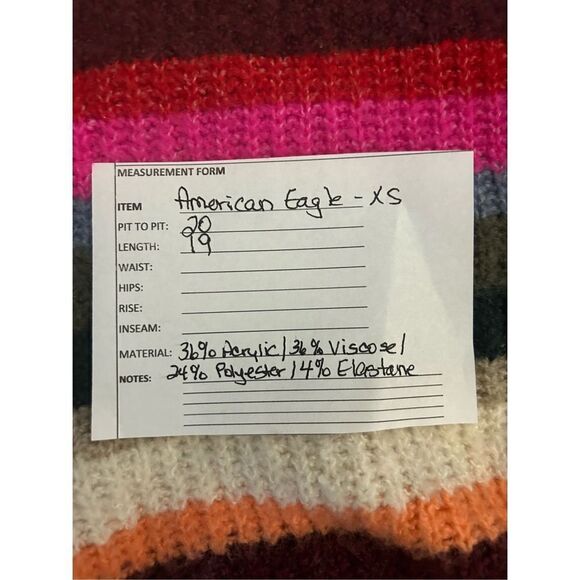 MEASUREMENT FORM
ITEM American Eagle - XS
PIT TO PIT: 20
LENGTH: 19
WAIST:
HIPS:
RISE:
INSEAM:
MATERIAL: 36% Acrylic / 36% Viscose /
NOTES: 24% Polyester / 4% Elastane